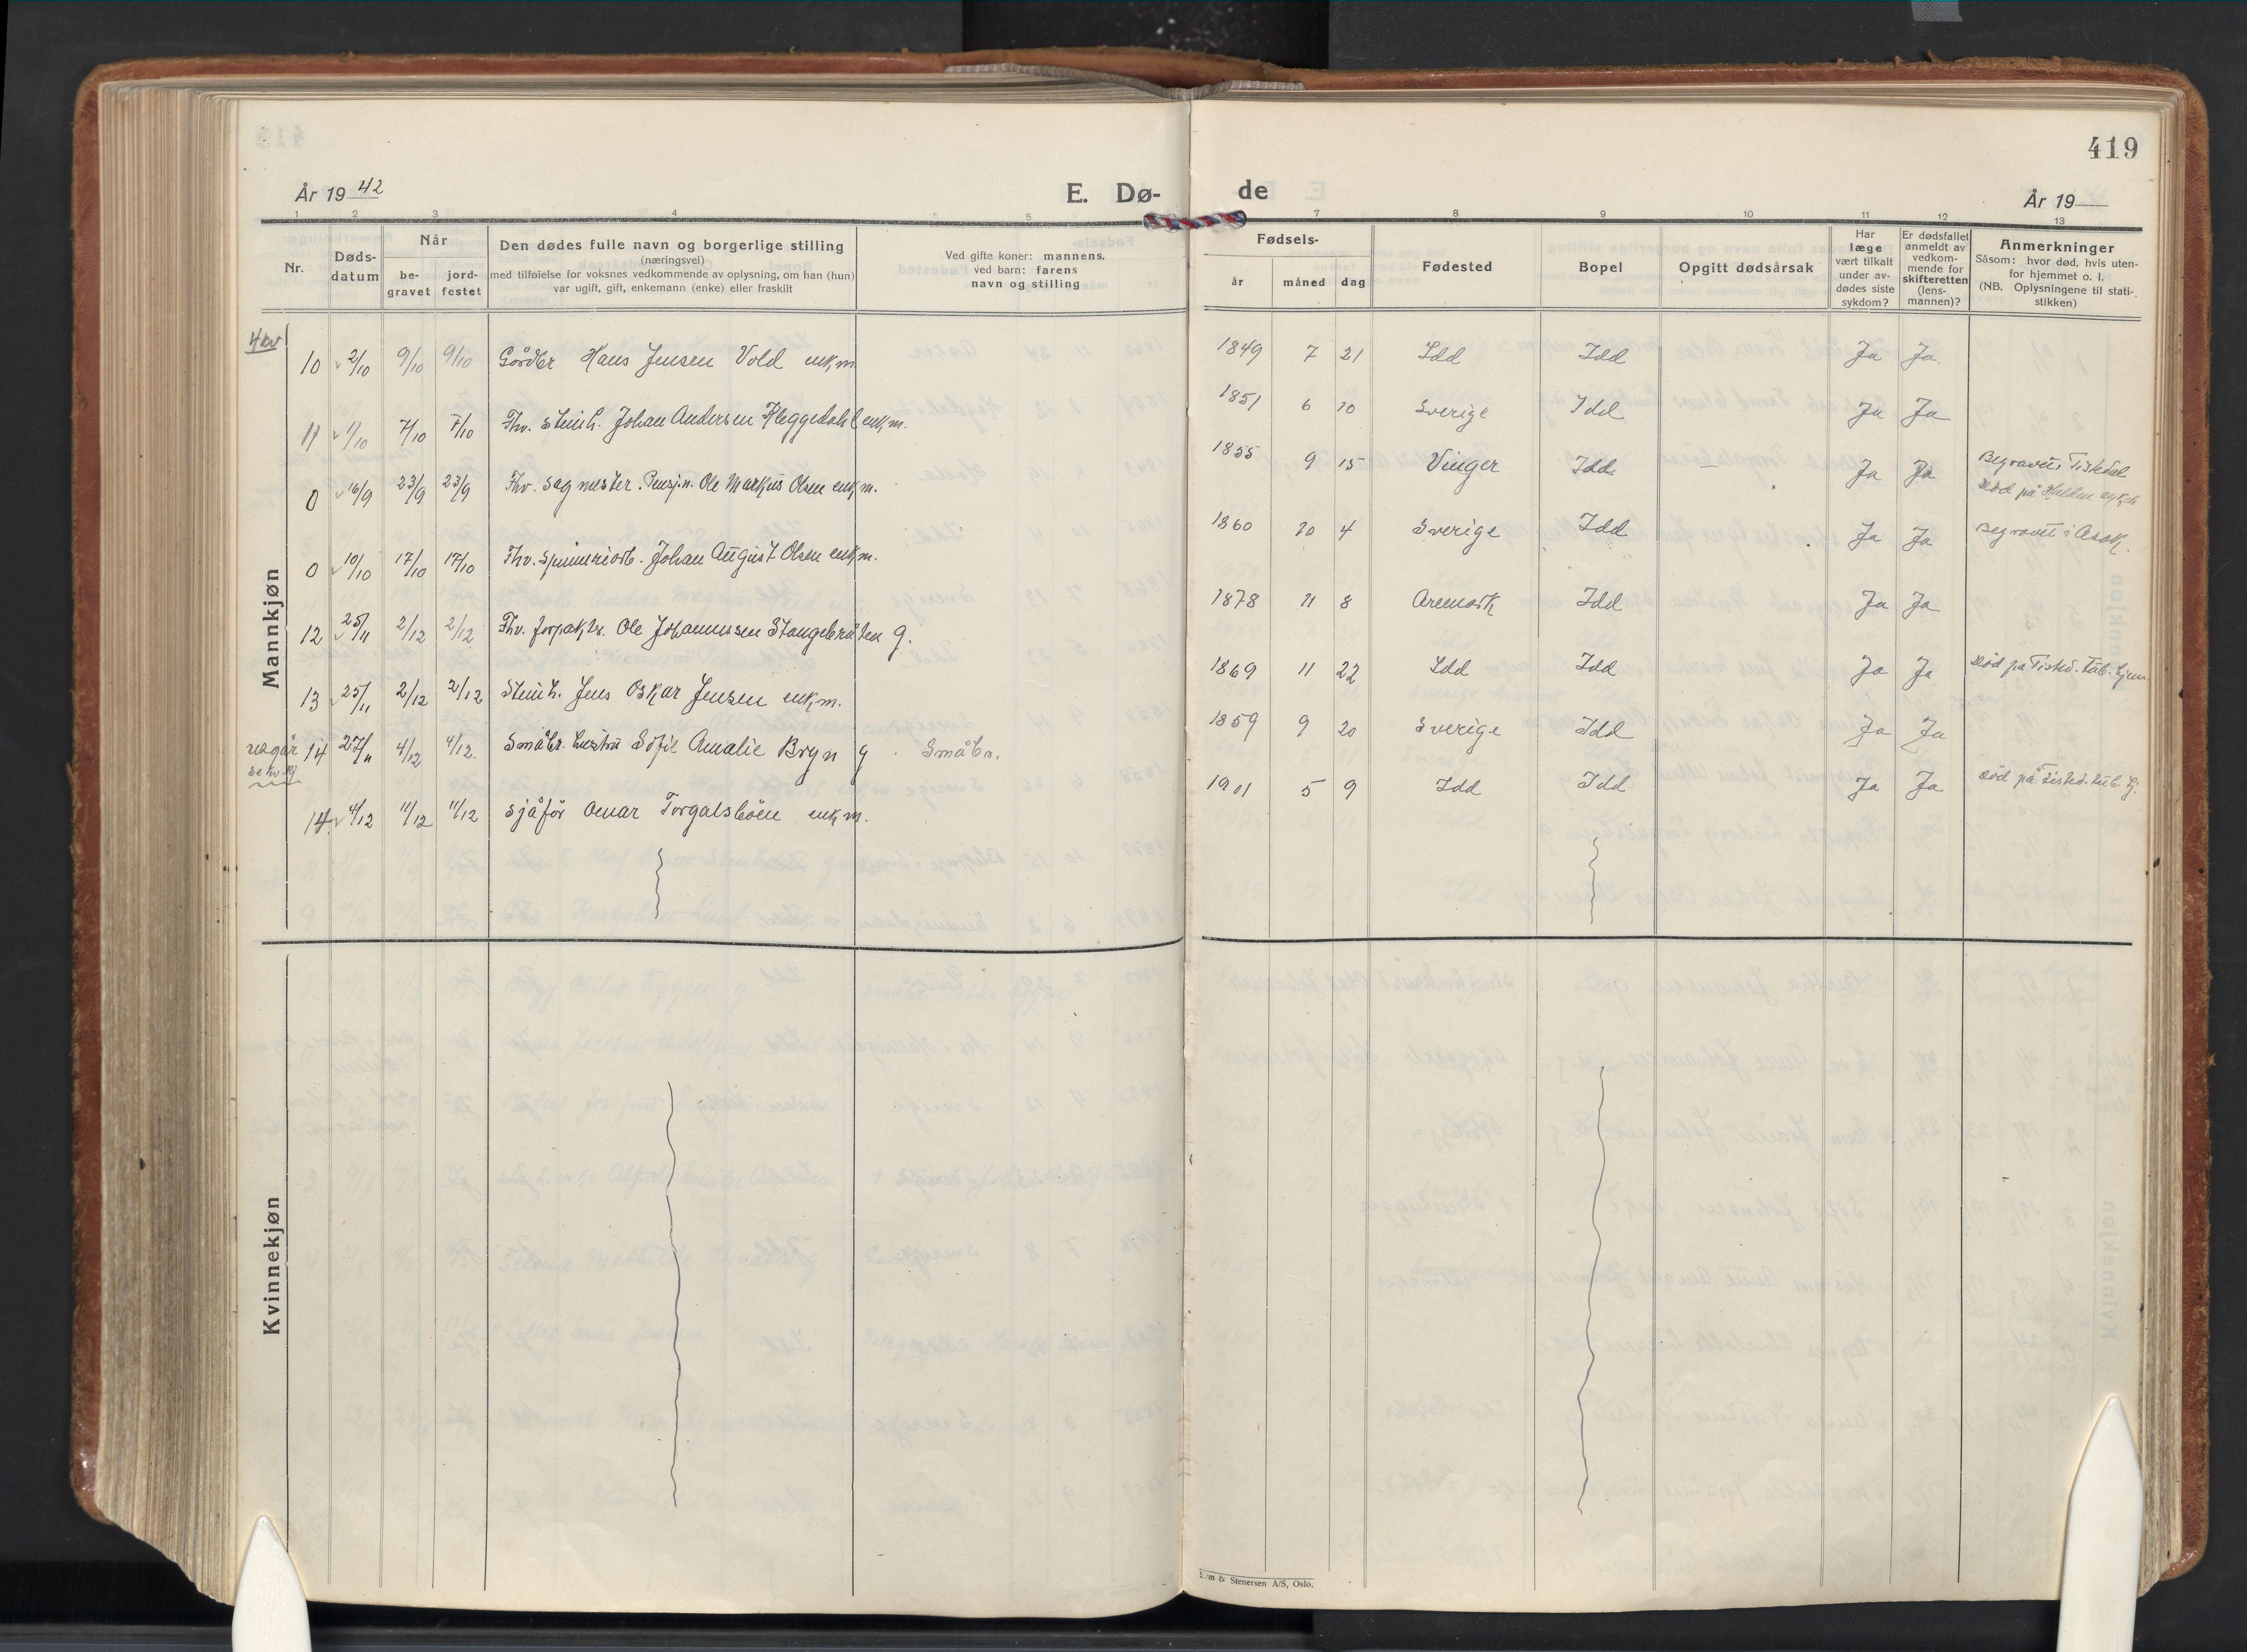 419
År 19 42
E. Dø-
de
År 19
1 2 3 4 5 7 8 9 10 11 12 13
Nr.
Døds-
datum
Når
be-
gravet
jord-
festet
Den dødes fulle navn og borgerlige stilling
(næringsvei)
med tilføielse for voksnes vedkommende av oplysning, om han (hun)
var ugift, gift, enkemann (enke) eller fraskilt
Ved gifte koner: mannens,
ved barn: farens
navn og stilling
Fødsels-
år måned dag
Fødested
Bopel
Opgitt dødsårsak
Har
læge
vært tilkalt
under av-
dødes siste
sykdom?
Er dødsfallet
anmeldt av
vedkom-
mende for
skifteretten
(lens-
mannen)?
Anmerkninger
Såsom: hvor død, hvis uten-
for hjemmet o. l.
(NB. Oplysningene til stati-
stikken)
Mannkjøn
10 2/10 9/10 9/10 Gårdbr Hans Jensen Vold enkm 1849 7 21 Idd Idd Ja Ja
11 1/10 7/10 7/10 Fhv. Stenh. Johan Andersen Kleggedahl enkm. 1851 6 10 Sverige Idd Ja Ja
0 16/9 23/9 23/9 Fhv. Sagmester. Pensj.n. Ole Markus Olsen enkm. 1855 9 15 Vinger Idd Ja Ja Begravet i Tistedal
død på Halden
0 10/10 17/10 17/10 Fhv. Spinneriarb. Johan August Olsen enkm. 1860 10 4 Sverige Idd Ja Ja Begravet i Asak.
12 25/11 2/12 2/12 Fhv. forpakter. Ole Johannessen Stangebråten g. 1878 11 8 Aremark Idd Ja Ja
13 25/11 2/12 2/12 Stenh. Jens Oskar Jensen enkm. 1869 11 22 Idd Idd Ja Ja død på Tisted. tub. hjem.
14 27/11 4/12 4/12. Småbr. hustru Sofie Amalie Bryn g Småbr. 1859 9 20 Sverige Idd Ja Ja
14 4/12 11/12 11/12 Sjåfør Einar Torgalsbøen enkm. 1901 5 9 Idd Idd Ja Ja død på Tisted. tub. hj.
Kvinnekjøn
Sem & Stenersen A/S, Oslo.